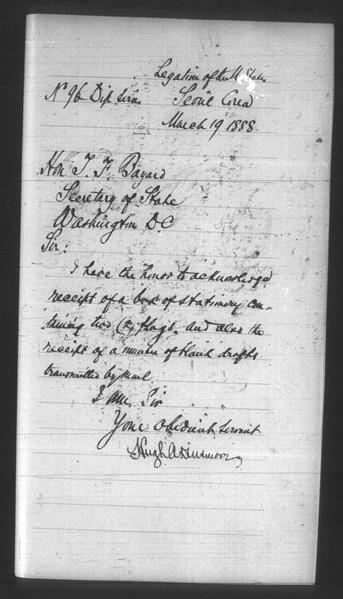 Legation of the U States
Nº 96 Dip. Series Seoul Corea
March 19 1888
Hon T. F. Bayard
Secretary of State
Washington D.C
Sir:
I have the honor to acknowledge
receipt of a box of stationery con-
taining two (2) flags. and also the
receipt of a number of blank drafts
transmitted by mail.
I am, Sir
Your obedient servant
Hugh A Dinsmore